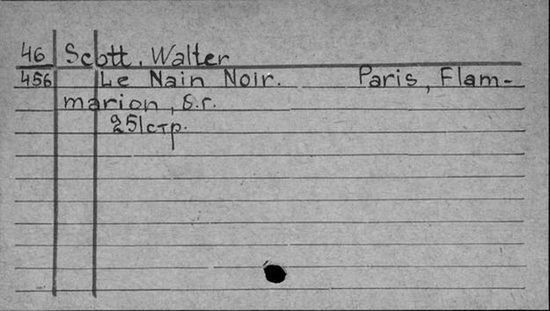 46 Scott, Walter
456 Le Nain Noir. Paris, Flam-
marion, б.г.
251стр.